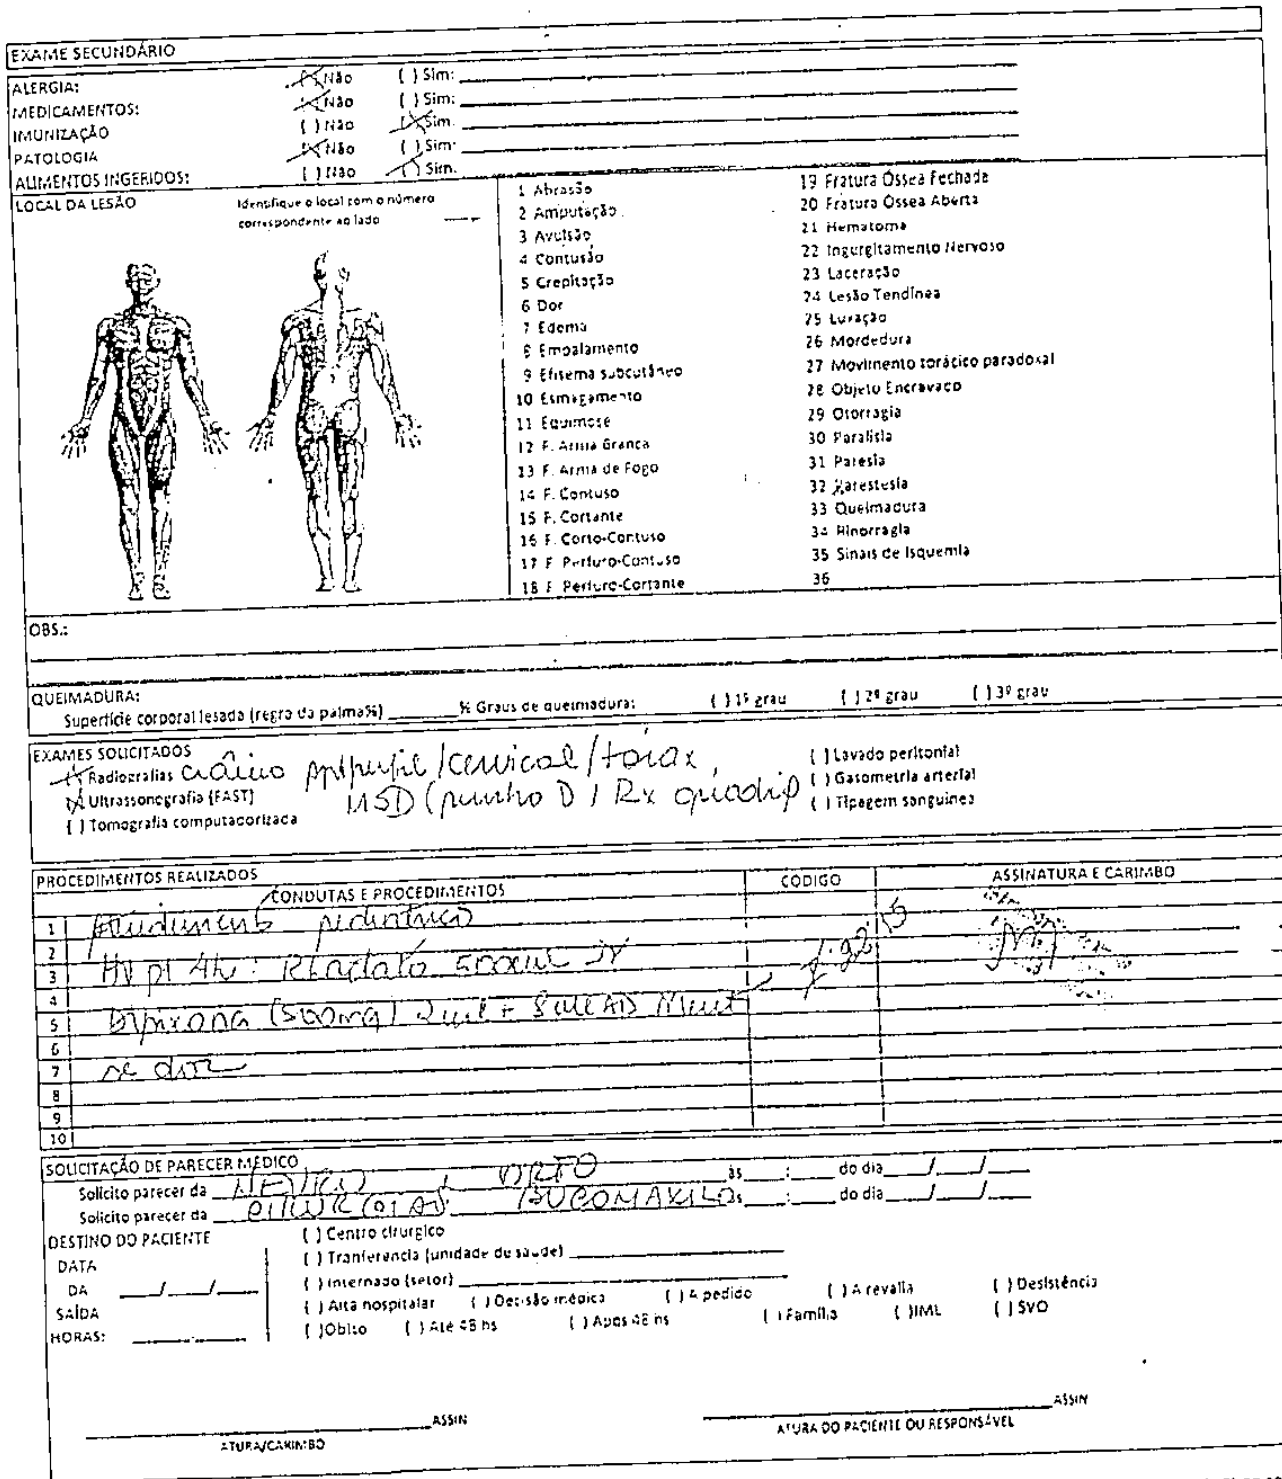 EXAME SECUNDÁRIO
ALERGIA: (X) Não ( ) Sim:
MEDICAMENTOS: (X) Não ( ) Sim:
IMUNIZAÇÃO ( ) Não (X) Sim.
PATOLOGIA (X) Não ( ) Sim:
ALIMENTOS INGERIDOS: ( ) Não (/) Sim.
LOCAL DA LESÃO Identifique o local com o número
correspondente ao lado
1 Abrasão
2 Amputação
3 Avulsão
4 Contusão
5 Crepitação
6 Dor
7 Edema
8 Empalamento
9 Efisema subcutâneo
10 Esmagamento
11 Equimose
12 F. Arma Branca
13 F. Arma de Fogo
14 F. Contuso
15 F. Cortante
16 F. Corto-Contuso
17 F. Perfuro-Contuso
18 F. Perfuro-Cortante
19 Fratura Óssea Fechada
20 Fratura Óssea Aberta
21 Hematoma
22 Ingurgitamento Nervoso
23 Laceração
24 Lesão Tendínea
25 Luxação
26 Mordedura
27 Movimento torácico paradoxal
28 Objeto Encravado
29 Otorragia
30 Paralisia
31 Paresia
32 Parestesia
33 Queimadura
34 Rinorragia
35 Sinais de Isquemia
36
OBS.:
QUEIMADURA:
Superfície corporal lesada (regra da palma%) ______% Graus de queimadura: ( ) 1º grau ( ) 2º grau ( ) 3º grau
EXAMES SOLICITADOS
(X) Radiografias crânio AP/perfil/cervical/tórax,
(X) Ultrassonografia (FAST) MSD (punho D / Rx quadril)
( ) Tomografia computadorizada
( ) Lavado peritonial
( ) Gasometria arterial
( ) Tipagem sanguínea
PROCEDIMENTOS REALIZADOS
CONDUTAS E PROCEDIMENTOS CODIGO ASSINATURA E CARIMBO
1 Atendimento pediátrico
2
3 HV p/ 4h: RLactato 500ml IV
4
5 Dipirona (500mg) 2ml + 8ml AD
6
7 se dor
8
9
10
SOLICITAÇÃO DE PARECER MÉDICO
Solicito parecer da NEURO , ORTO às ___:___ do dia ___/___/___
Solicito parecer da CIRURGIA, BUCOMAXILO às ___:___ do dia ___/___/___
DESTINO DO PACIENTE
DATA
DA ___/___/___
SAÍDA
HORAS: ______
( ) Centro cirurgico
( ) Tranferencia (unidade de saude)
( ) Internado (setor)
( ) Alta hospitalar ( ) Decisão médica ( ) A pedido ( ) A revalia ( ) Desistência
( )Obito ( ) Até 48 hs ( ) Apos 48 hs ( ) Família ( )IML ( ) SVO
ASSIN
ATURA/CARIMBO
ASSIN
ATURA DO PACIENTE OU RESPONSÁVEL